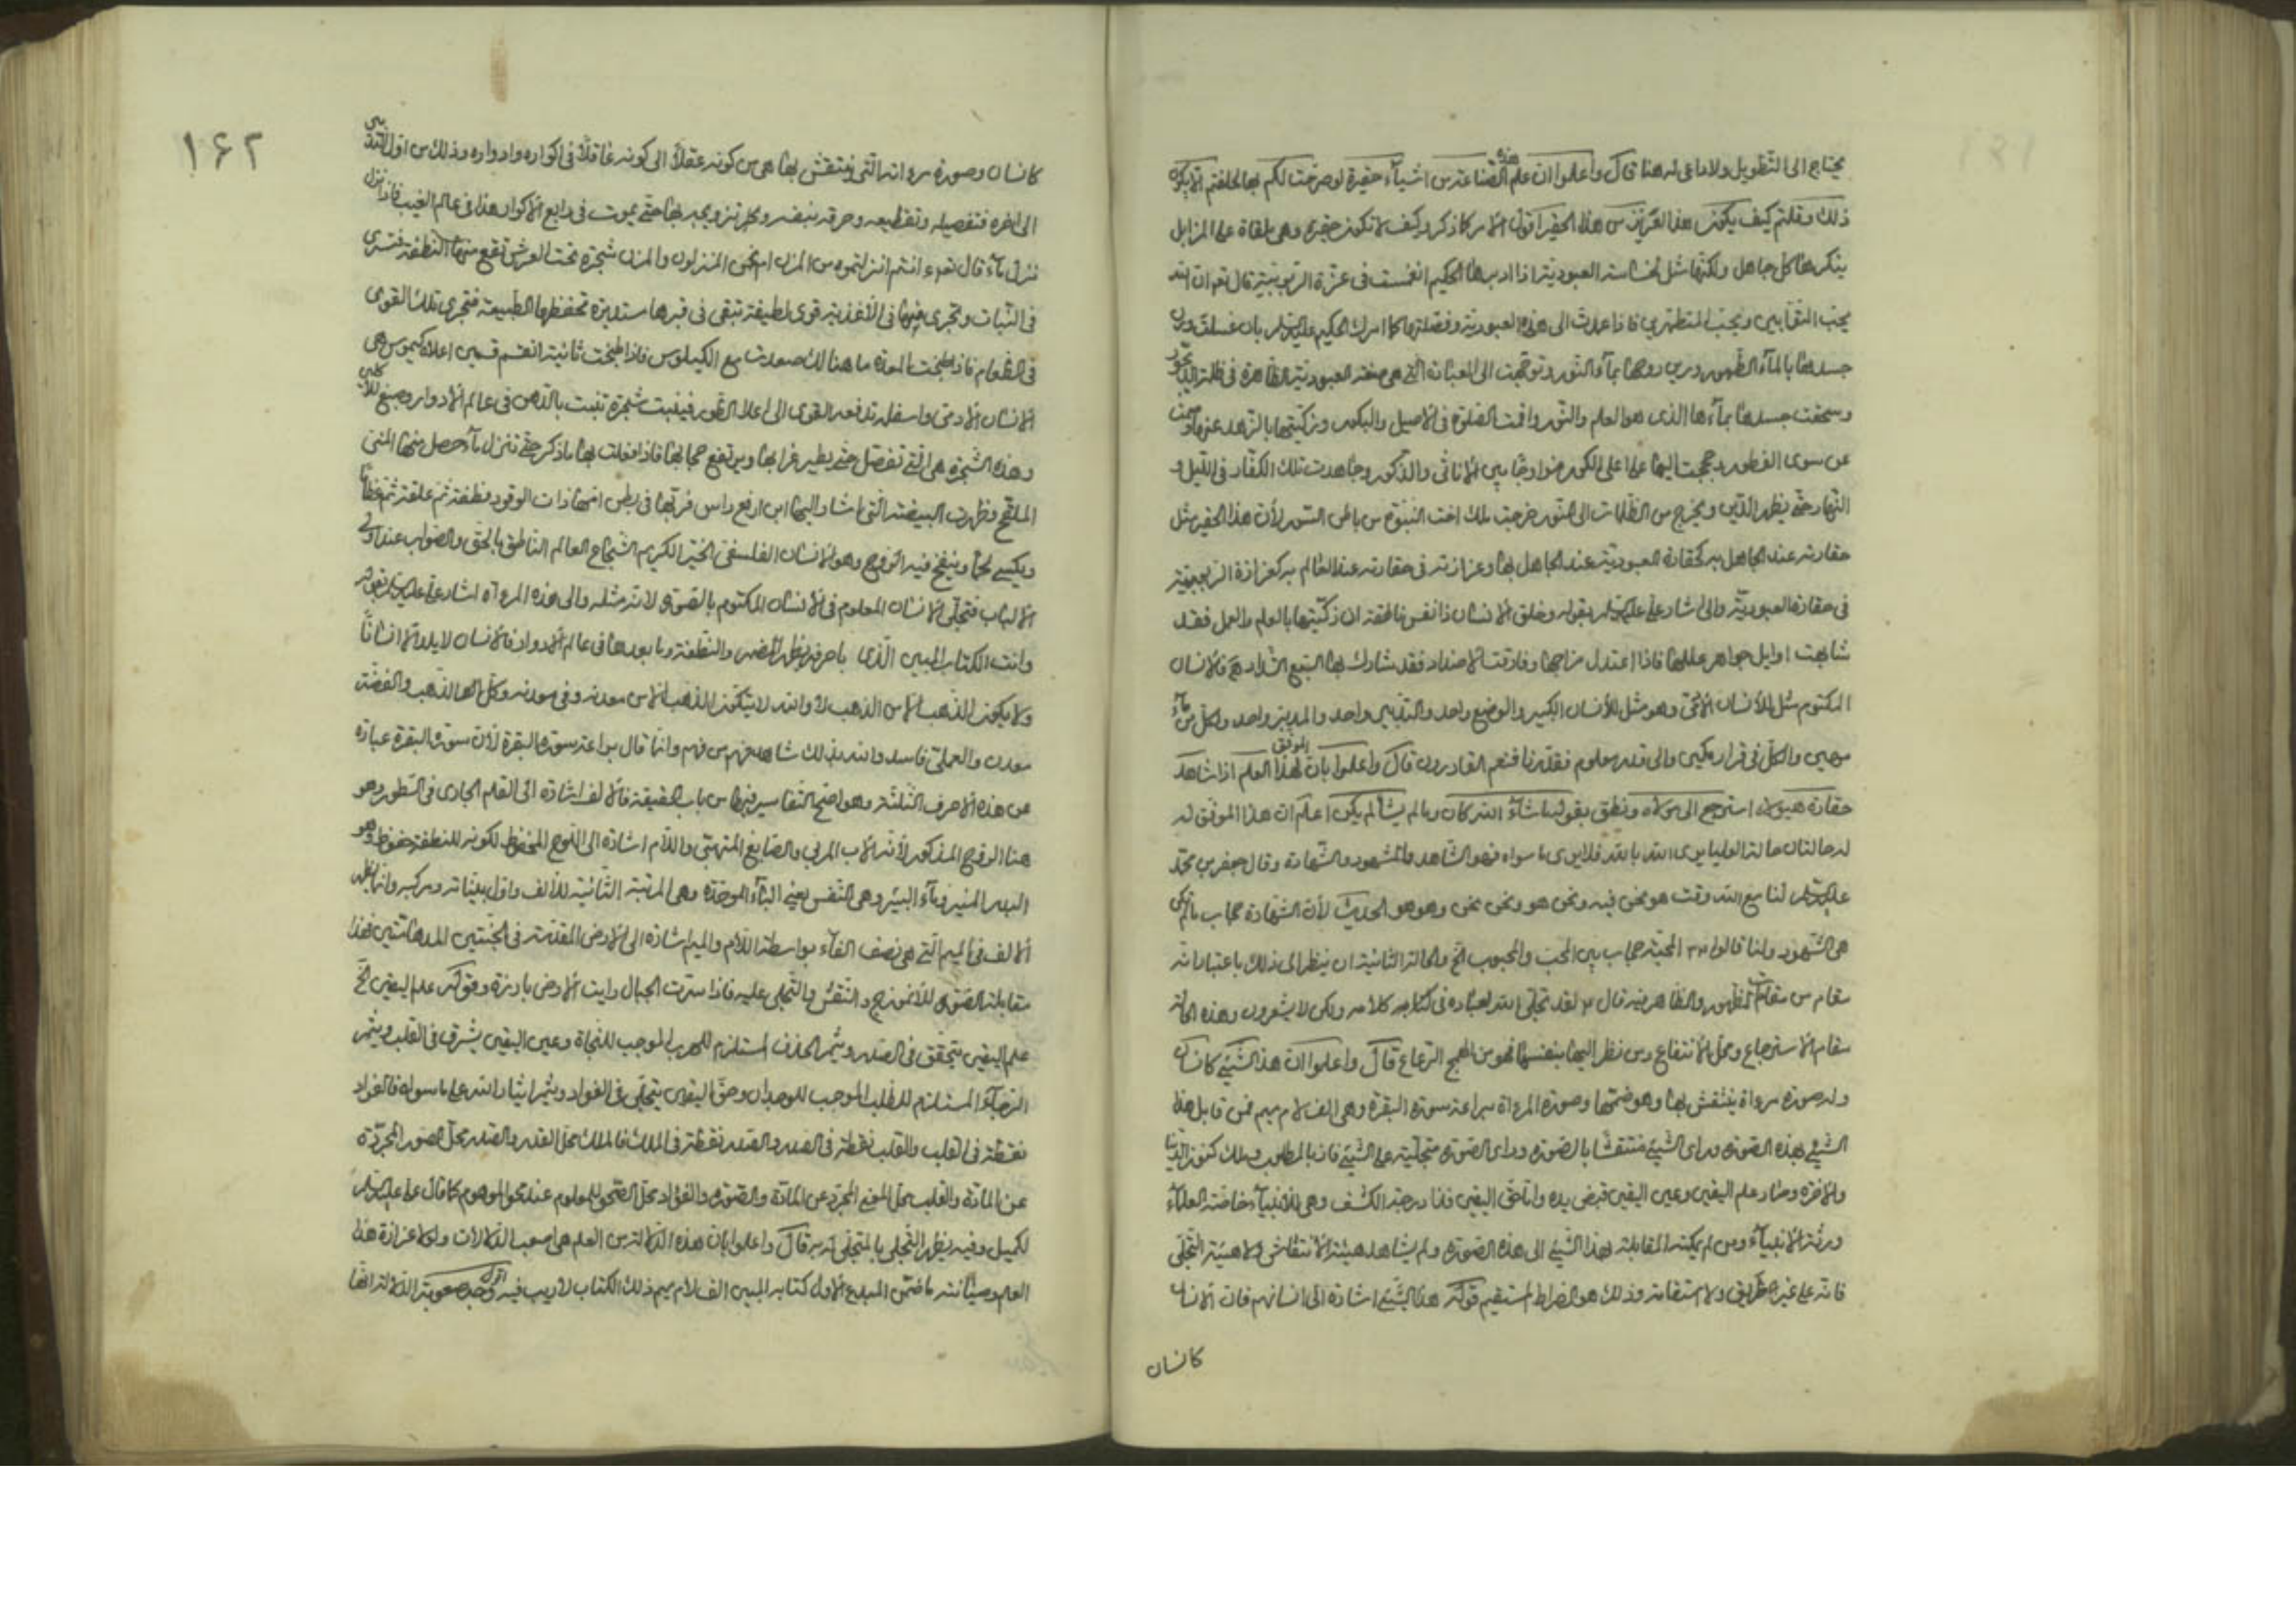 يحتاج الى التطويل ولا داعى له هنا قال واعلموا ان علم هذه الصناعة من اشياء حقيرة لو صرحت لكم بها لحلفتم
ذلك وقلتم كيف يكون هذا العزيز من هذا الحقير اقول الامر كما ذكر وكيف لا تكون حقيرة وهى ملقاة على المزابل
ينكرها كل جاهل ولكنها مثل العبودية اذا ادبرها الحكيم انغمست فى عزة الربوبية قال تعالى ان الله
يحب التوابين ويحب المتطهرين فاذا عدت الى هذه العبودية وفصلتها كما امرك الحكيم عليه السلام بان غسلت درن
جسدها بالماء الطهور ودرن روحها بماء النور وتوجهت الى التى هى العبودية الظاهرة فى ظلمة
وسحقت جسدها بماءها الذى هو العلم والنور واقمت الصلوة فى الاصيل والبكور وزكيتها بالزهد
عن سوى الغفور وحججت اليها على اعلى الكور مزاوجا بين الاناثى والذكور وجاهدت تلك الكفار فى الليل و
النهار حتى يظهر الدين ويخرج من الظلمات الى النور خرجت ملك اخت النبوة من باطن السور لان هذا الحقير مثل
حقارته عند الجاهل به كحقارة العبودية عند الجاهل بها وعزازته فى حقارته عند العالم به كعزازة الربوبية
فى حقارة العبودية والى اشار على عليه السلام بقوله وخلق الانسان ذا نفس ناطقة ان زكيتها بالعلم والعمل فقد
شابهت اوايل جواهر عللها فاذا اعتدل مزاجها وفارقت الاضداد فقد شارك بها السبع الشداد فالانسان
المكتوم مثل الانسان وهو مثل الانسان الكبير والوضع واحد والتدبير واحد والمدبر واحد والكل من ماء
مهين والكل فى قرار مكين والى قدر معلوم فقدرنا فنعم القادرون قال واعلموا بان الموفق لهذا العلم اذا شاهد
حقارة هيولاه استرجع الى مولاه ونطق بقوله ما شاء الله كان وما لم يشأ لم يكن اعلم ان هذا الموفق له
له حالتان حالة العليا يرى الله بالله فلا يرى ما سواه فهو الشاهد والمشهود والشهادة وقال جعفر بن محمد
عليه السلام لنا مع الله وقت هو نحن فيه ونحن هو ونحن نحن وهو هو الحديث لان الشهادة حجاب
هى الشهود ولذا قالوا المحبة حجاب بين المحب والمحبوب الخ والحالة الثانية ان ينظر الى ذلك باعتبار انه
مقام من مقامات الظهور والظاهر فيه قال لقد تجلى الله لعباده فى كتابه كلامه ولكن لا يشعرون وهذه الحالة
مقام الاسترجاع ومحل الانتفاع ومن نظر اليها بنفسها فهو من الهمج الرعاع قال واعلموا ان هذا الشيئ كانسان
وله صورة مرءاة ينتقش بها وهو ضمنها وصورة المرءاة براعة سورة البقرة وهى الف لام ميم فمن قابل هذا
الشيئ بهذه الصورة وراى الشيئ منتقشا بالصورة وراى الصورة متجلية على الشيئ فاز بالمطلوب وملك كنوز الدنيا
والاخرة وصار علم اليقين وعين اليقين قبض يده واما حق اليقين فذا درجة الكشف وهى للانبياء خاصة العلماء
ورثة الانبياء ومن لم يمكنه المقابلة بهذا الشيئ الى هذه الصورة ولم يشاهد هيئة الانتقاش ولا هيئة التجلى
فانه على غير الطريق ولا استقامة وذلك هو الصراط المستقيم قوله هذا الشيئ اشارة الى انسانهم فان الانسان
كانسان
١۶٢
كانسان وصورة مرءاته التى ينتقش بها هى من كونه عقلاً الى كونه عاقلاً فى اكواره وادواره وذلك من اول التدبير
الى اخره فتفصيله وتقطيعه وحرقه بنفسه حتى يموت فى رابع الاكوار هذا فى عالم الغيب فاذا نزل
نزل ماء قال تعالى ءانتم انزلتموه من المزن ام نحن المنزلون والمزن شجرة تحت العرش تقع منها النطفة فتسرى
فى النبات وتجرى فيها فى الاغذية قوى لطيفة تبقى فى قبرها مستديرة تحفظها الطبيعة فتجرى تلك القوى
فى الطعام فاذا طبخت المعدة ما هنالك صعدت مع الكيلوس فاذا طبخت ثانية انقسم قسمين اعلاه كيموس هى
الانسان الادمى واسفله تدفعه القوى الى اعلا الطور فينبت شجرة تنبت بالدهن فى عالم الادوار وصبغ للاكلين
وهذه الشجرة هى التى تفصل حتى يطير غرابها ويرتفع حجابها فاذا فعلت بها ما ذكر حتى تنزل ماء حصل منها المنى
الملقح وظهرت البيضة التى اشار اليها ابن ارفع راس فى بطن امها ذات الوقود نطفة ثم علقة ثم عظاما
ويكسى لحما وينفخ فيه الروح وهو الانسان الفلسفى الخير الكريم الشجاع العالم الناطق بالحق والصواب عند اولى
الالباب فتجلى الانسان المعلوم فى الانسان المكتوم بالصورة لانه مثله والى هذه المرءاة اشار على عليه السلام بقوله
وانت الكتاب المبين الذى باحرفه يظهر المضمر والنطفة وما بعدها فى عالم الادوار فالانسان لا يلد الا انسانًا
ولا يكون الذهب الا من الذهب لا والله لا يتكون الذهب الا من معدنه وفى معدنه وكل الذهب والفضة
معدن والعملى فاسد والله بذلك شاهد فهم من فهم وانما قال براعة سورة البقرة لان سورة البقرة عبارة
عن هذه الاحرف الثلثة وهو اصح التفاسير فيها من باب الحقيقة فالالف اشارة الى القلم الجارى فى السطور وهو
هنا الروح المذكور لانه الاب المربى والصابغ المنتهى واللام اشارة الى اللوح المحفوظ لكونه للنطفة حفوظ وهو
البدر المنير وماء البئر وهى النفس يعنى الباء الموحدة وهى المرتبة الثانية للالف واول بيناته ومركبه
الالف فى الميم التى هى نصف الفاء بواسطة اللام والميم اشارة الى الارض المقدسة فى الجنتين المدهامتين فهذا
مقابلة الصورة للانموزج والنقش والتجلى عليه فاذا سيرت الجبال رايت الارض بارزة وقوله علم اليقين الخ
علم اليقين يتحقق فى الصدر ويثمر الخوف المستلزم للهرب الموجب للنجاة وعين اليقين يشرق فى القلب ويثمر
الرجاء المستلزم للطلب الموجب للوجدان وحق اليقين يتجلى فى الفواد ويثمر ايثار الله على ما سواه فالفواد
نقطة فى القلب والقلب نقطة فى الصدر والصدر نقطة فى الملك فالملك محل القدر والصدر محل الصور المجردة
عن المادة والقلب محل المعنى المجرد عن المادة والصورة والفؤاد محل الصحو للمعلوم عند محو الموهوم كما قال على عليه السلام
لكميل وفيه يظهر التجلى بالمتجلى له به قال واعلموا بان هذه الدلالة من العلم هى اصعب الدلالات ولولا عزازة هذا
العلم وصيانته ما ضمن المبدع الاول كتابه المبين الف لام ميم ذلك الكتاب لا ريب فيه اقول وجه صعوبة الدلالة انها